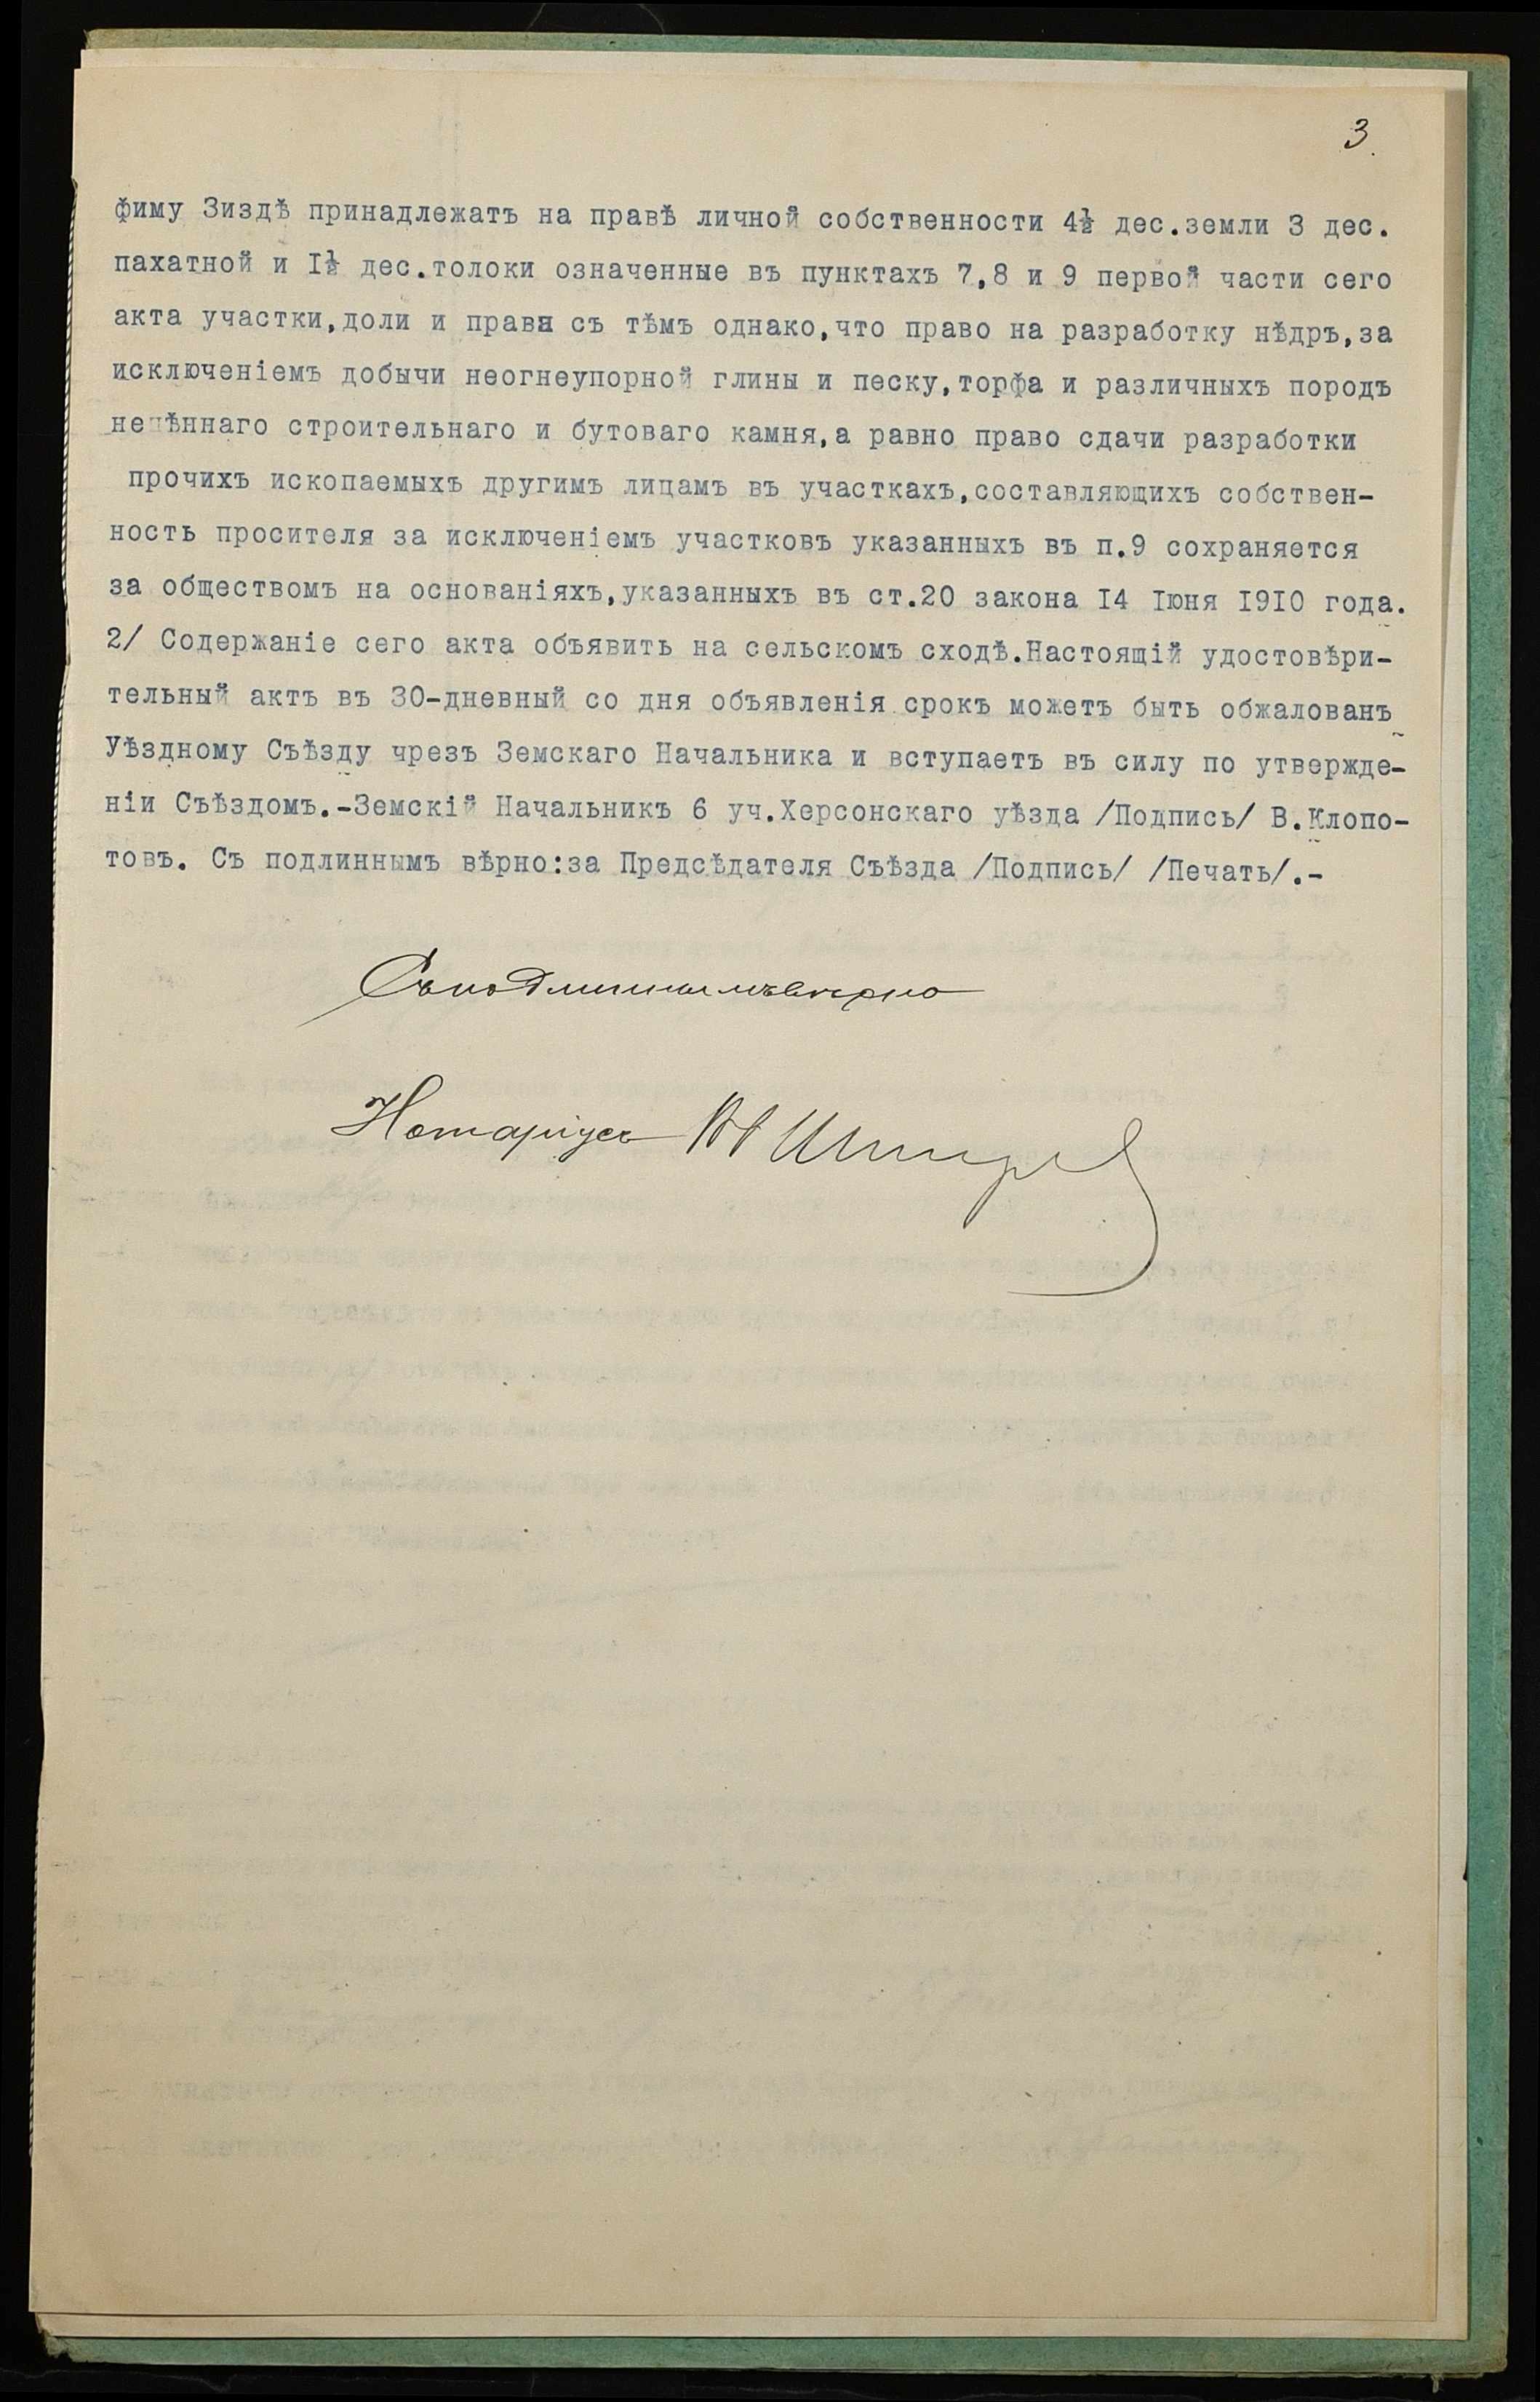 3.
фиму Зиздѣ принадлежатъ на правѣ личной собственности 4½ дес.земли 3 дес.
пахатной и I½ дес.толоки означенные въ пунктахъ 7,8 и 9 первой части сего
акта участки,доли и права съ тѣмъ однако,что право на разработку нѣдръ,за
исключеніемъ добычи неогнеупорной глины и песку,торфа и различныхъ породъ
нецѣннаго строительнаго и бутоваго камня,а равно право сдачи разработки
прочихъ ископаемыхъ другимъ лицамъ въ участкахъ,составляющихъ собствен-
ность просителя за исключеніемъ участковъ указанныхъ въ п.9 сохраняется
за обществомъ на основаніяхъ,указанныхъ въ ст.20 закона I4 Iюня I9I0 года.
2/ Содержаніе сего акта объявить на сельскомъ сходѣ.Настоящій удостовѣри-
тельный актъ въ 30-дневный со дня объявленія срокъ можетъ быть обжалованъ
Уѣздному Съѣзду чрезъ Земскаго Начальника и вступаетъ въ силу по утвержде-
ніи Съѣздомъ.-Земскій Начальникъ 6 уч.Херсонскаго уѣзда /Подпись/ В.Клопо-
товъ. Съ подлиннымъ вѣрно:за Предсѣдателя Съѣзда /Подпись/ /Печать/.-
Съ подлиннымъ вѣрно
Нотаріусъ